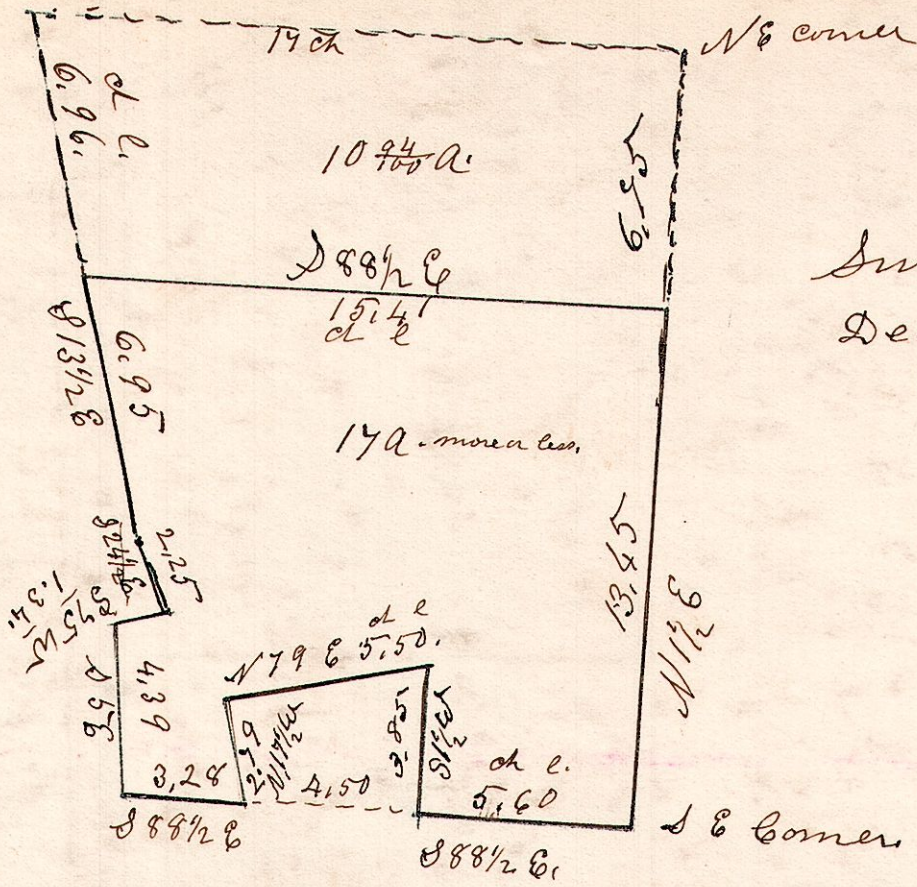 17 ch
N E corner
ch l.
6,96.
10 94/100 a.
6,95
S 88 1/2 E
15,41
ch l
Sur
De
S 13 1/2 E
6,95
17 a. more or less.
S 24 1/2 E
2,25
S 75 W
1.34
13,45
N 1 1/2 E
ch l
N 79 E 5,50.
4,39
3,28
N 17 1/2 W
4,50
3,85
S 1 1/2 W
ch l.
5,60
S 88 1/2 E
S 88 1/2 E.
S E Corner.